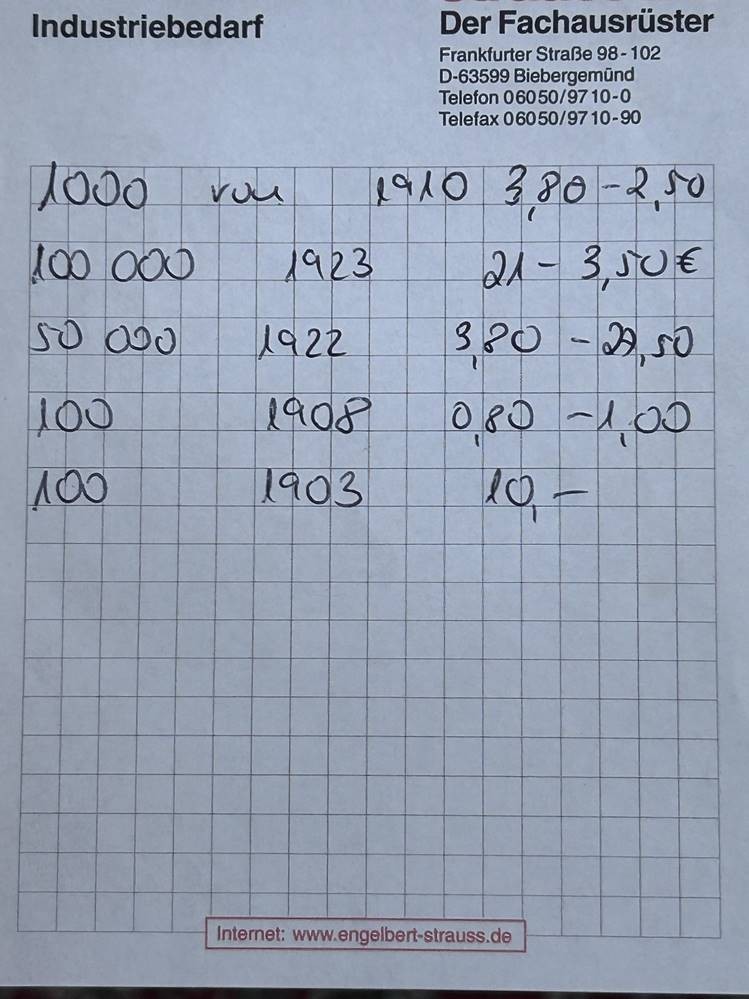 Industriebedarf
Der Fachausrüster
Frankfurter Straße 98-102
D-63599 Biebergemünd
Telefon 06050/9710-0
Telefax 06050/9710-90
1000 von 1910 3,80 - 2,50
100 000 1923 21 - 3,50 €
50 000 1922 3,80 -
100 1908 0,80 - 1,00
100 1903 10,-
Internet: www.engelbert-strauss.de